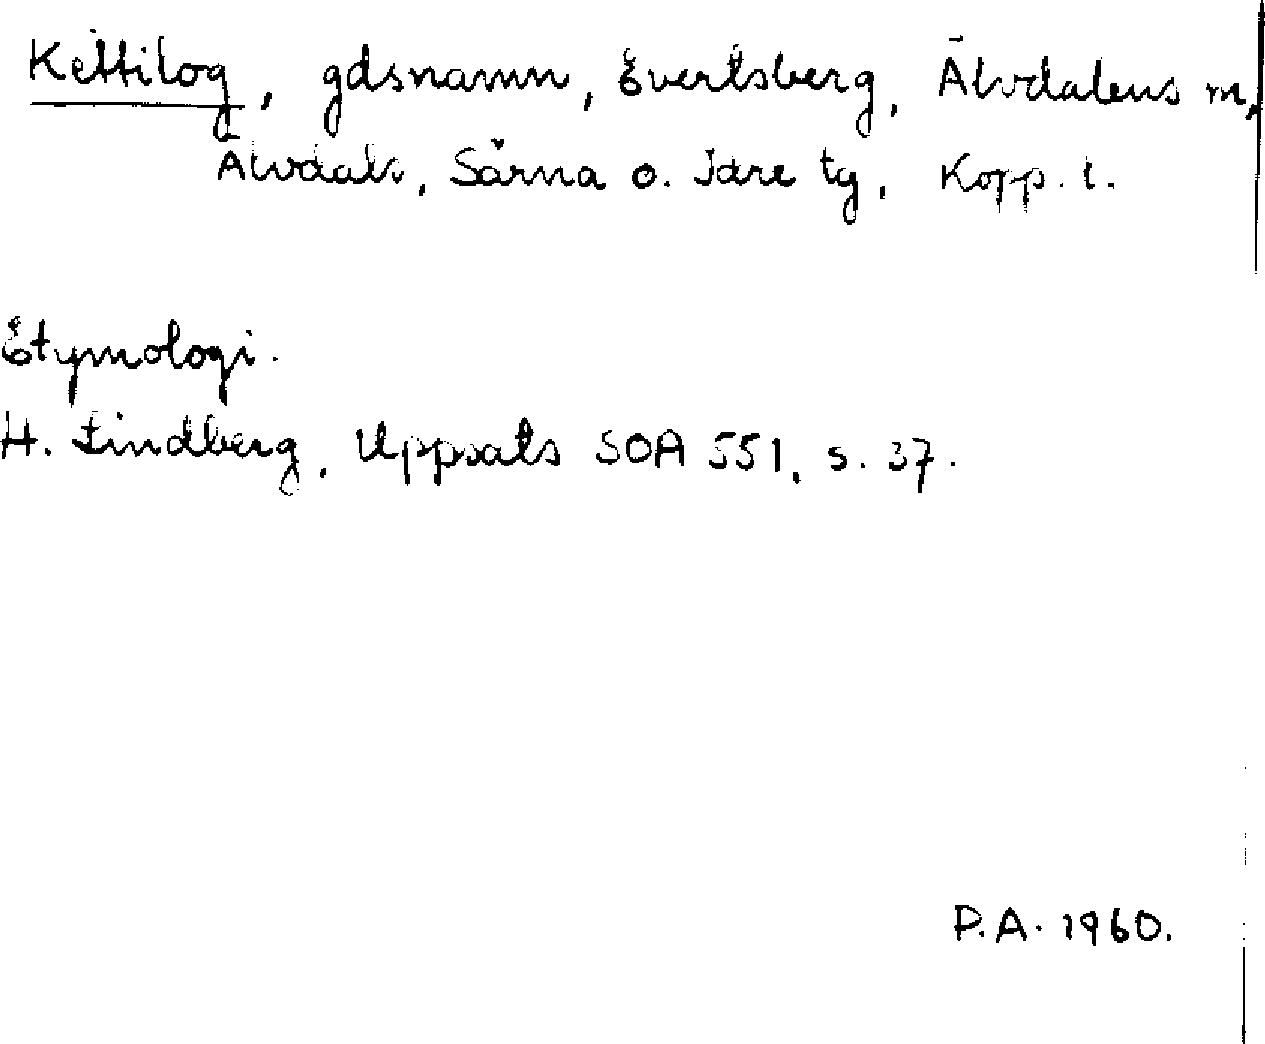 Kettilog, gdsnamn, Evertsberg, Älvdalens m,
Älvdals, Särna o. Idre tg, Kopp. l.
Etymologi.
H. Lindberg, Uppsats SOA 551, s. 37.
P.A. 1960.